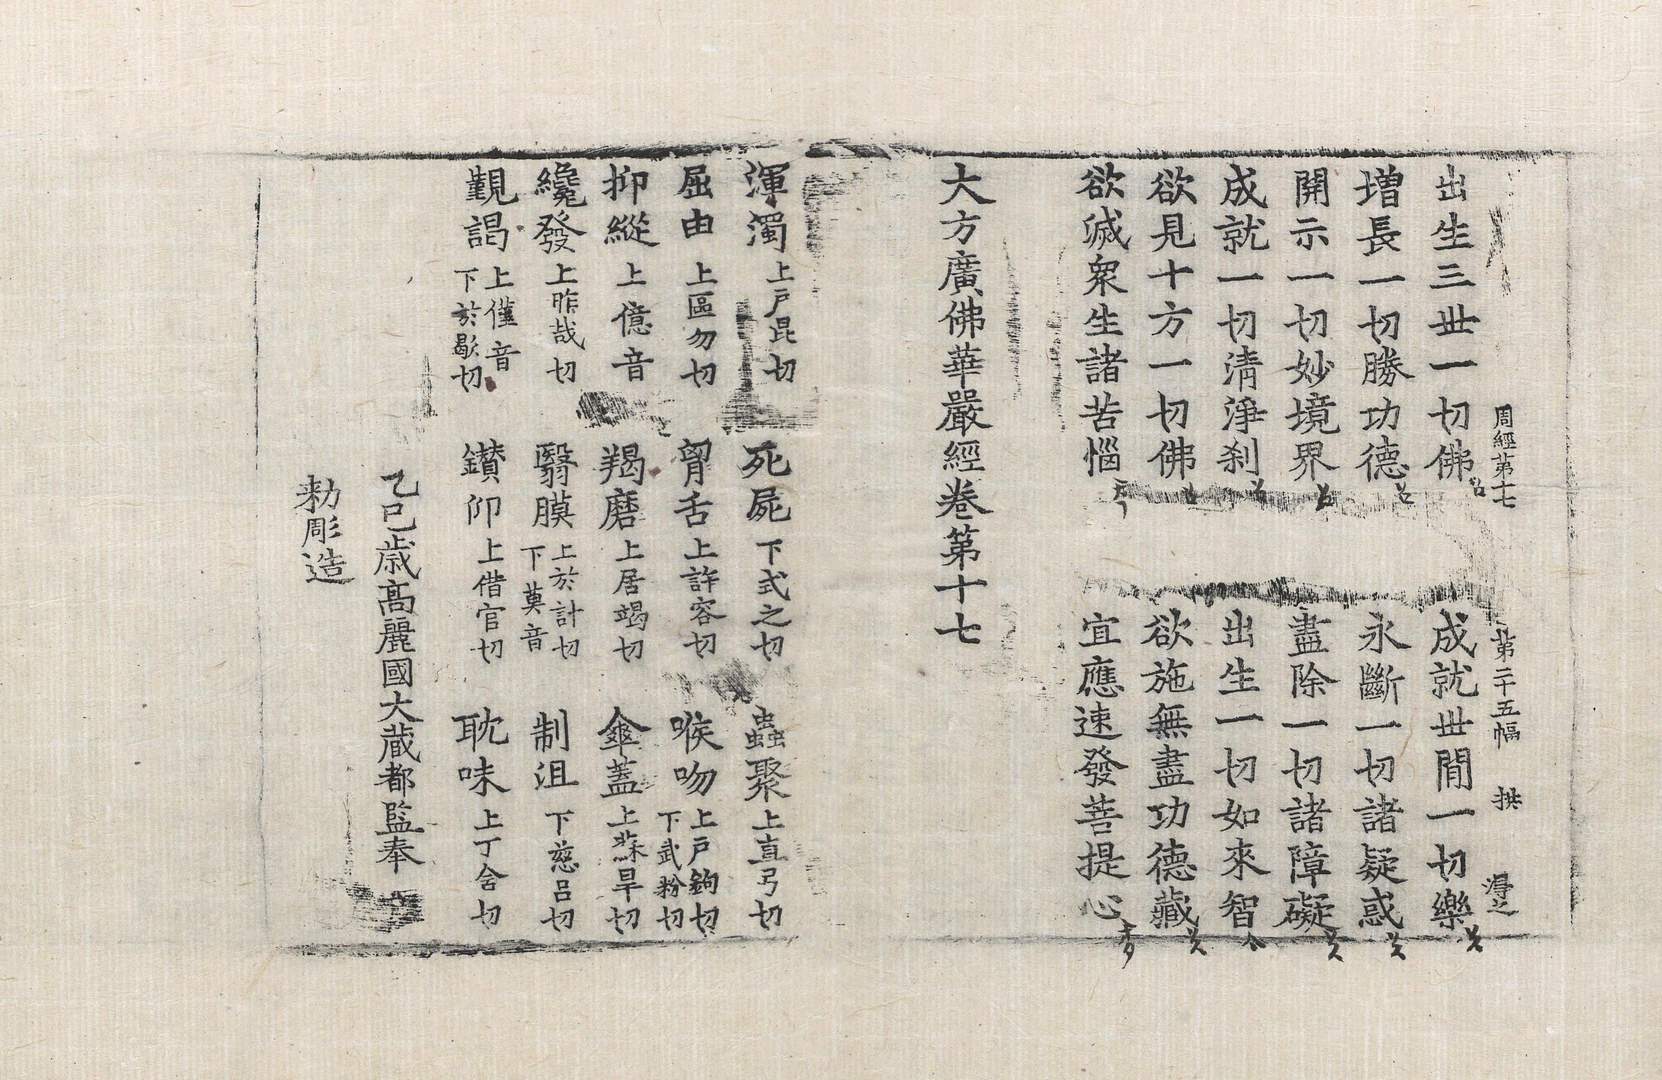 周經第十七 第二十五幅 拱
出生三世一切佛 成就世閒一切樂
增長一切勝功德 永斷一切諸疑惑
開示一切妙境界 盡除一切諸障礙
成就一切清淨刹 出生一切如來智
欲見十方一切佛 欲施無盡功德藏
欲滅衆生諸苦惱 宜應速發菩提心
大方廣佛華嚴經卷第十七
渾濁 上戶昆切 死屍 下式之切 蟲聚 上直弓切
屈由 上區勿切 胷舌 上許容切 喉吻 上戶鉤切 下武粉切
抑縱 上億音 羯磨 上居竭切 傘蓋 上蘇旱切
纔發 上昨哉切 翳膜 上於計切 下莫音 制沮 下慈呂切
覲謁 上僅音 下於歇切 鑚仰 上借官切 耽味 上丁含切
乙巳歳高麗國大藏都監奉
勑彫造